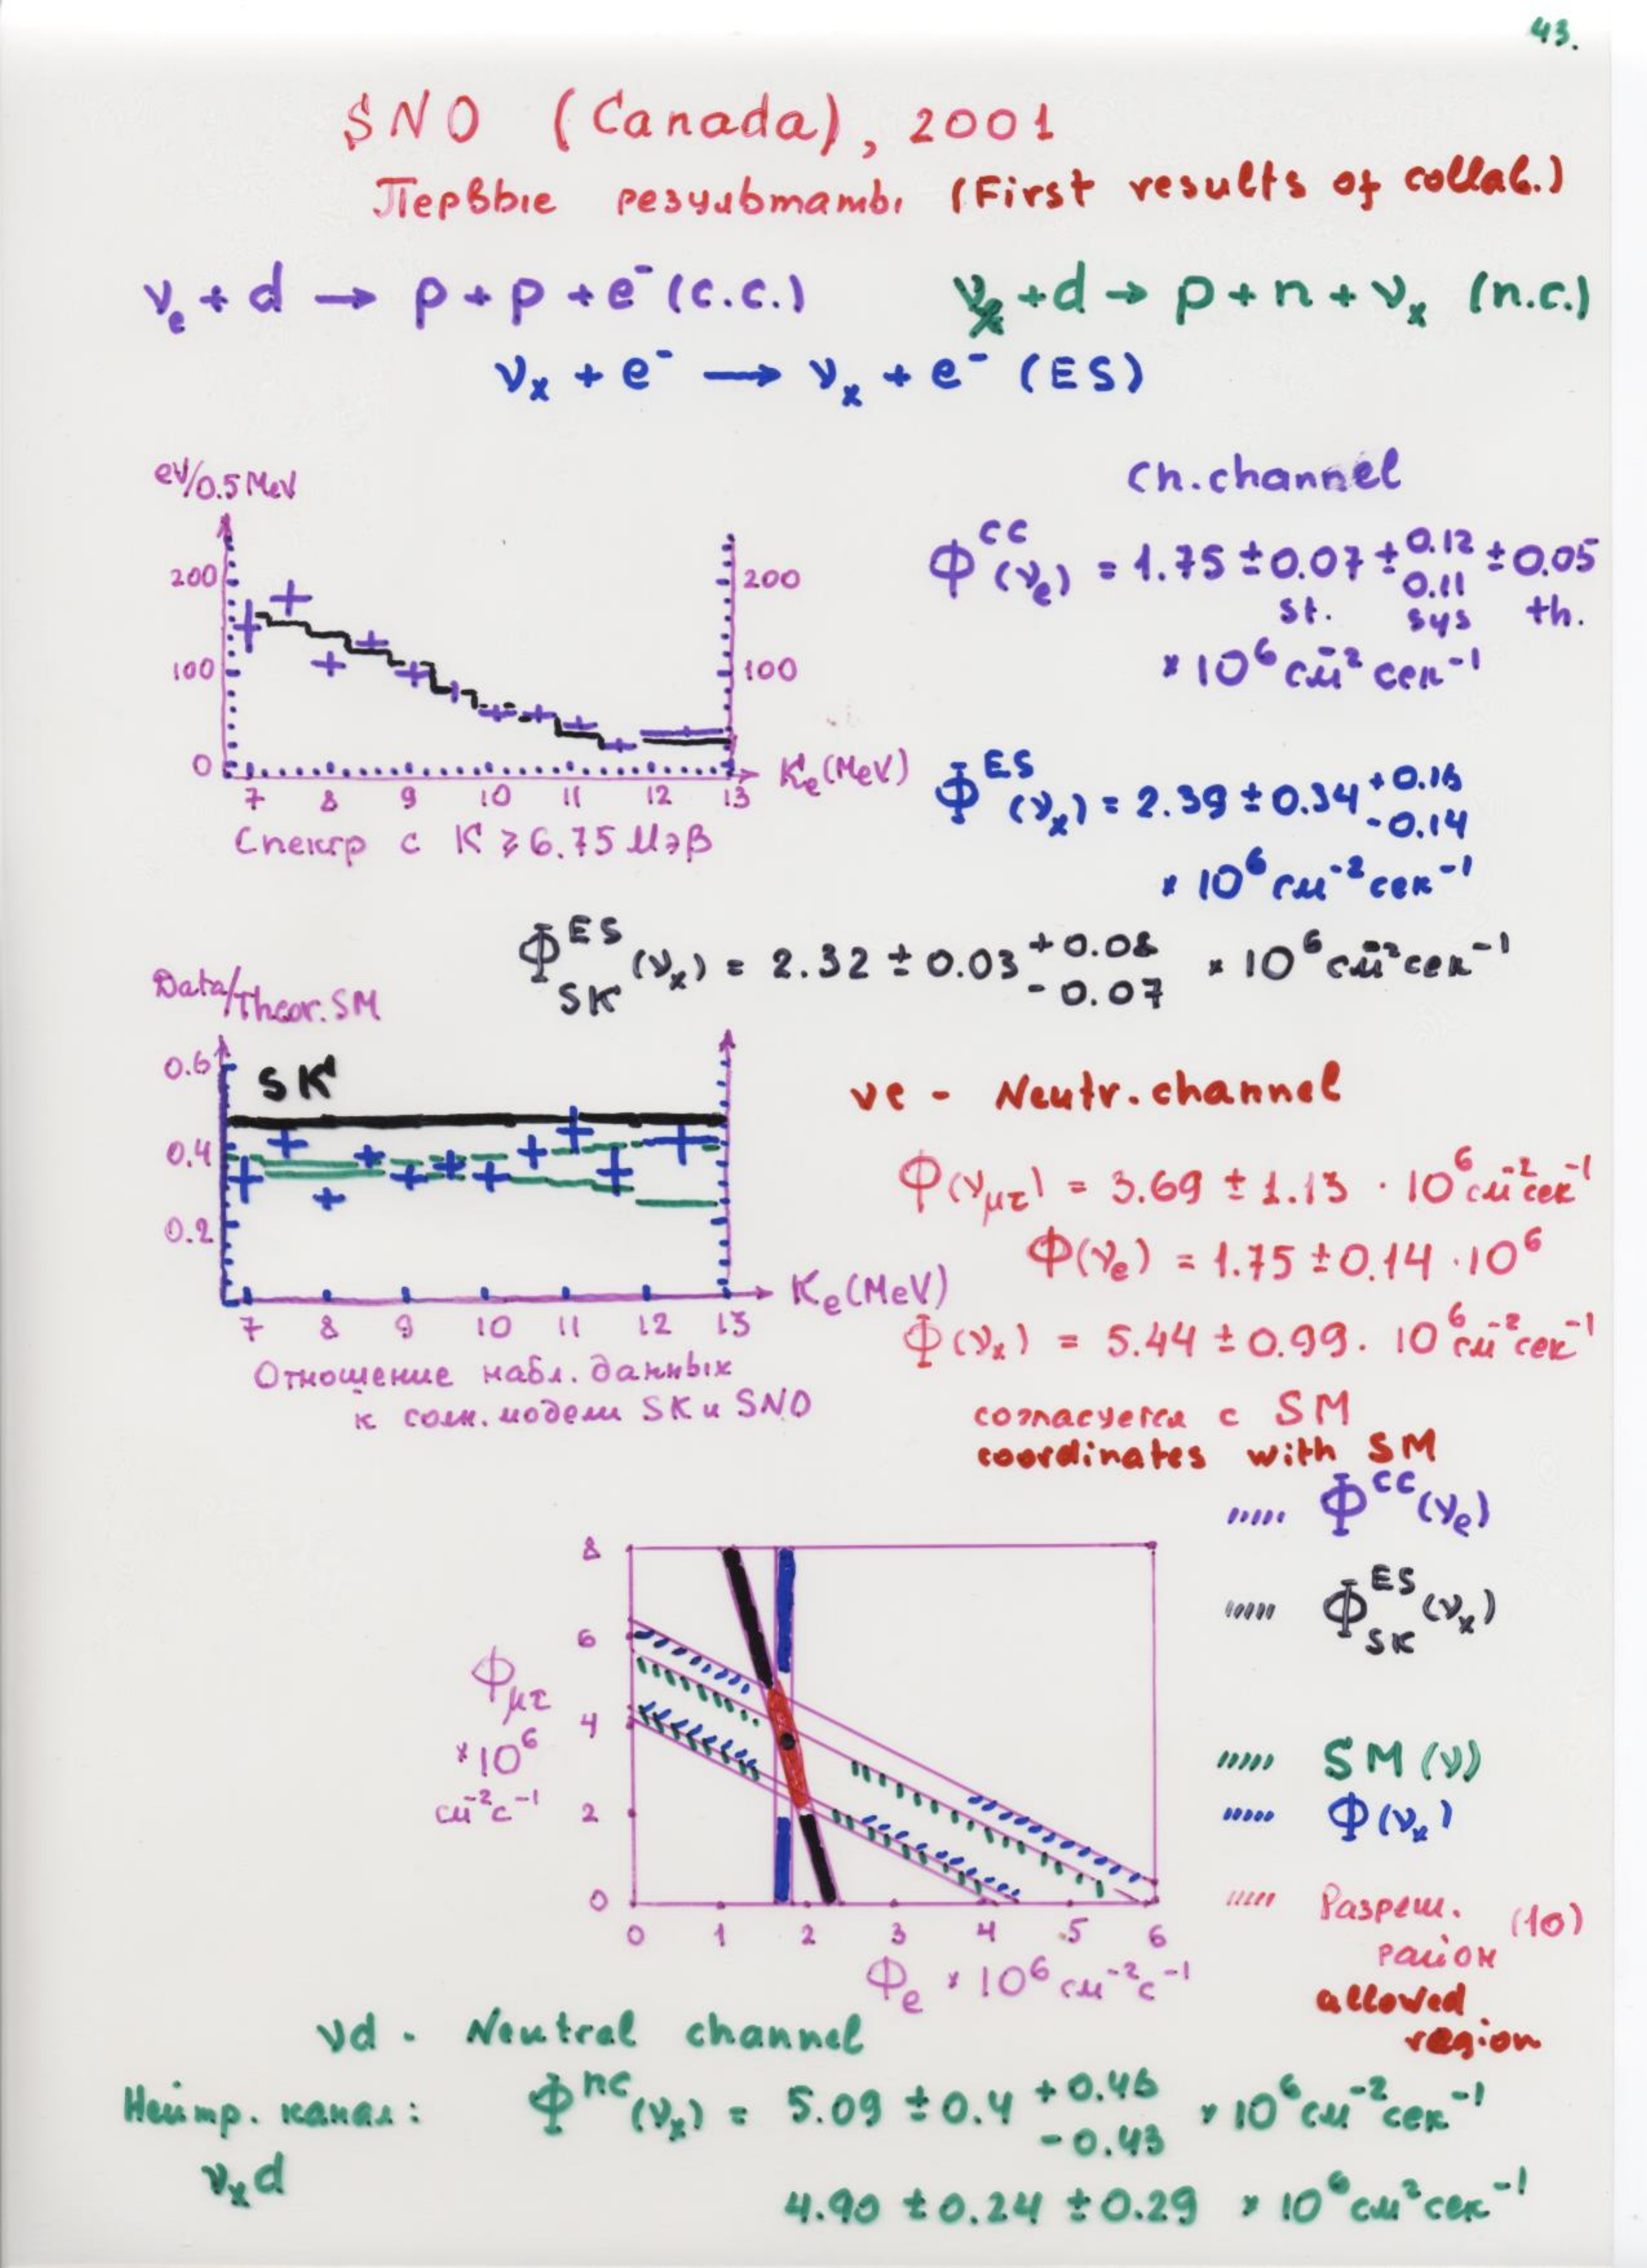 43.
SNO (Canada), 2001
Первые результаты (First results of collab.)
νe + d → p + p + e⁻ (c.c.) νx + d → p + n + νx (n.c.)
νx + e⁻ → νx + e⁻ (ES)
ev/0.5 MeV
200
100
0
200
100
7 8 9 10 11 12 13
Ke (MeV)
Спектр с K ≥ 6.75 МэВ
Ch. channel
Φ^CC (νe) = 1.75 ± 0.07 ± 0.12 0.11 ± 0.05
st. sys th.
× 10⁶ см⁻² сек⁻¹
Φ^ES (νx) = 2.39 ± 0.34 +0.16 -0.14
× 10⁶ см⁻² сек⁻¹
Φ^ES SK (νx) = 2.32 ± 0.03 +0.08 -0.07 × 10⁶ см⁻² сек⁻¹
Data/Theor. SM
0.6
0.4
0.2
SK
7 8 9 10 11 12 13
Ke (MeV)
Отношение набл. данных
к солн. модели SK и SNO
νe - Neutr. channel
Φ(νμτ) = 3.69 ± 1.13 · 10⁶ см⁻² сек⁻¹
Φ(νe) = 1.75 ± 0.14 · 10⁶
Φ(νx) = 5.44 ± 0.99 · 10⁶ см⁻² сек⁻¹
согласуется с SM
coordinates with SM
Φ^CC (νe)
Φ^ES SK (νx)
SM (ν)
Φ(νx)
Разреш. район (1σ)
allowed
region
Φμτ
× 10⁶
см⁻² с⁻¹
8
6
4
2
0
0 1 2 3 4 5 6
Φe × 10⁶ см⁻² с⁻¹
νd - Neutral channel
Нейтр. канал: Φ^nc (νx) = 5.09 ± 0.4 +0.46 -0.43 × 10⁶ см⁻² сек⁻¹
νx d
4.90 ± 0.24 ± 0.29 × 10⁶ см² сек⁻¹